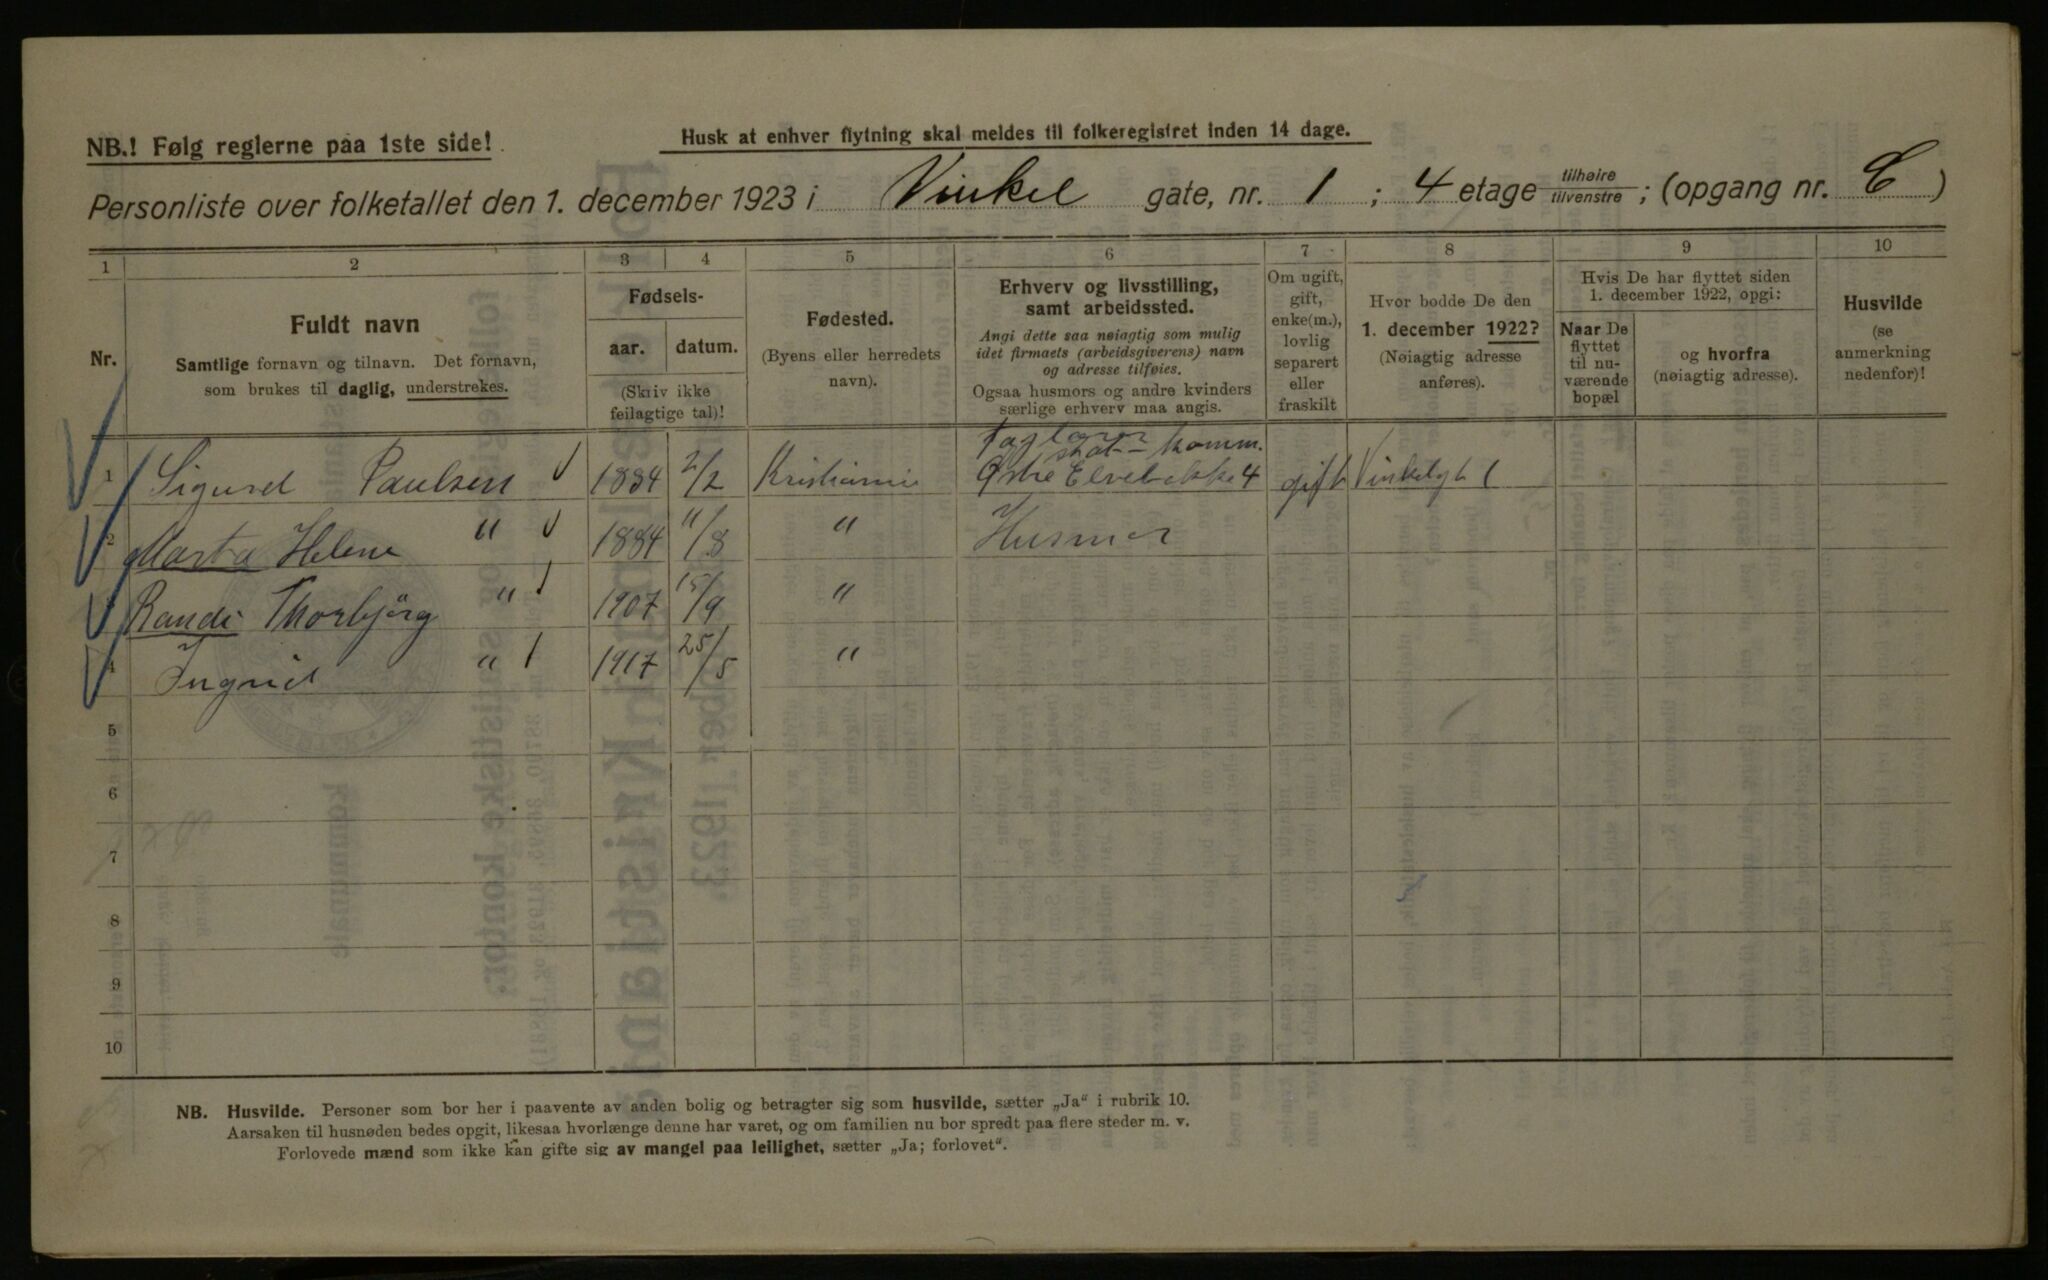 NB.! Følg reglerne paa 1ste side!
Husk at enhver flytning skal meldes til folkeregistret inden 14 dage.
Personliste over folketallet den 1. december 1923 i Vinkel gate, nr. 1 ; 4 etage tilhøire tilvenstre ; (opgang nr. C )
1 2 3 4 5 6 7 8 9 10
Nr.
Fuldt navn
Samtlige fornavn og tilnavn. Det fornavn,
som brukes til daglig, understrekes.
Fødsels-
aar. datum.
(Skriv ikke
feilagtige tal)!
Fødested.
(Byens eller herredets
navn).
Erhverv og livsstilling,
samt arbeidssted.
Angi dette saa nøiagtig som mulig
idet firmaets (arbeidsgiverens) navn
og adresse tilføies.
Ogsaa husmors og andre kvinders
særlige erhverv maa angis.
Om ugift,
gift,
enke(m.),
lovlig
separert
eller
fraskilt
Hvor bodde De den
1. december 1922?
(Nøiagtig adresse
anføres).
Hvis De har flyttet siden
1. december 1922, opgi:
Naar De
flyttet
til nu-
værende
bopæl
og hvorfra
(nøiagtig adresse).
Husvilde
(se
anmerkning
nedenfor)!
komm.
1 Sigurd Paulsen 1884 2/2 Kristiania Østre Elvebakke 4 gift Vinkelgt 1
2 Marta Helene " 1884 11/8 " Husmor
3 Randi Thorbjörg " 1907 15/9 "
4 Ingrid " 1917 25/5 "
5
6
7
8
9
10
NB. Husvilde. Personer som bor her i paavente av anden bolig og betragter sig som husvilde, sætter „Ja" i rubrik 10.
Aarsaken til husnøden bedes opgit, likesaa hvorlænge denne har varet, og om familien nu bor spredt paa flere steder m. v.
Forlovede mænd som ikke kan gifte sig av mangel paa leilighet, sætter „Ja; forlovet".